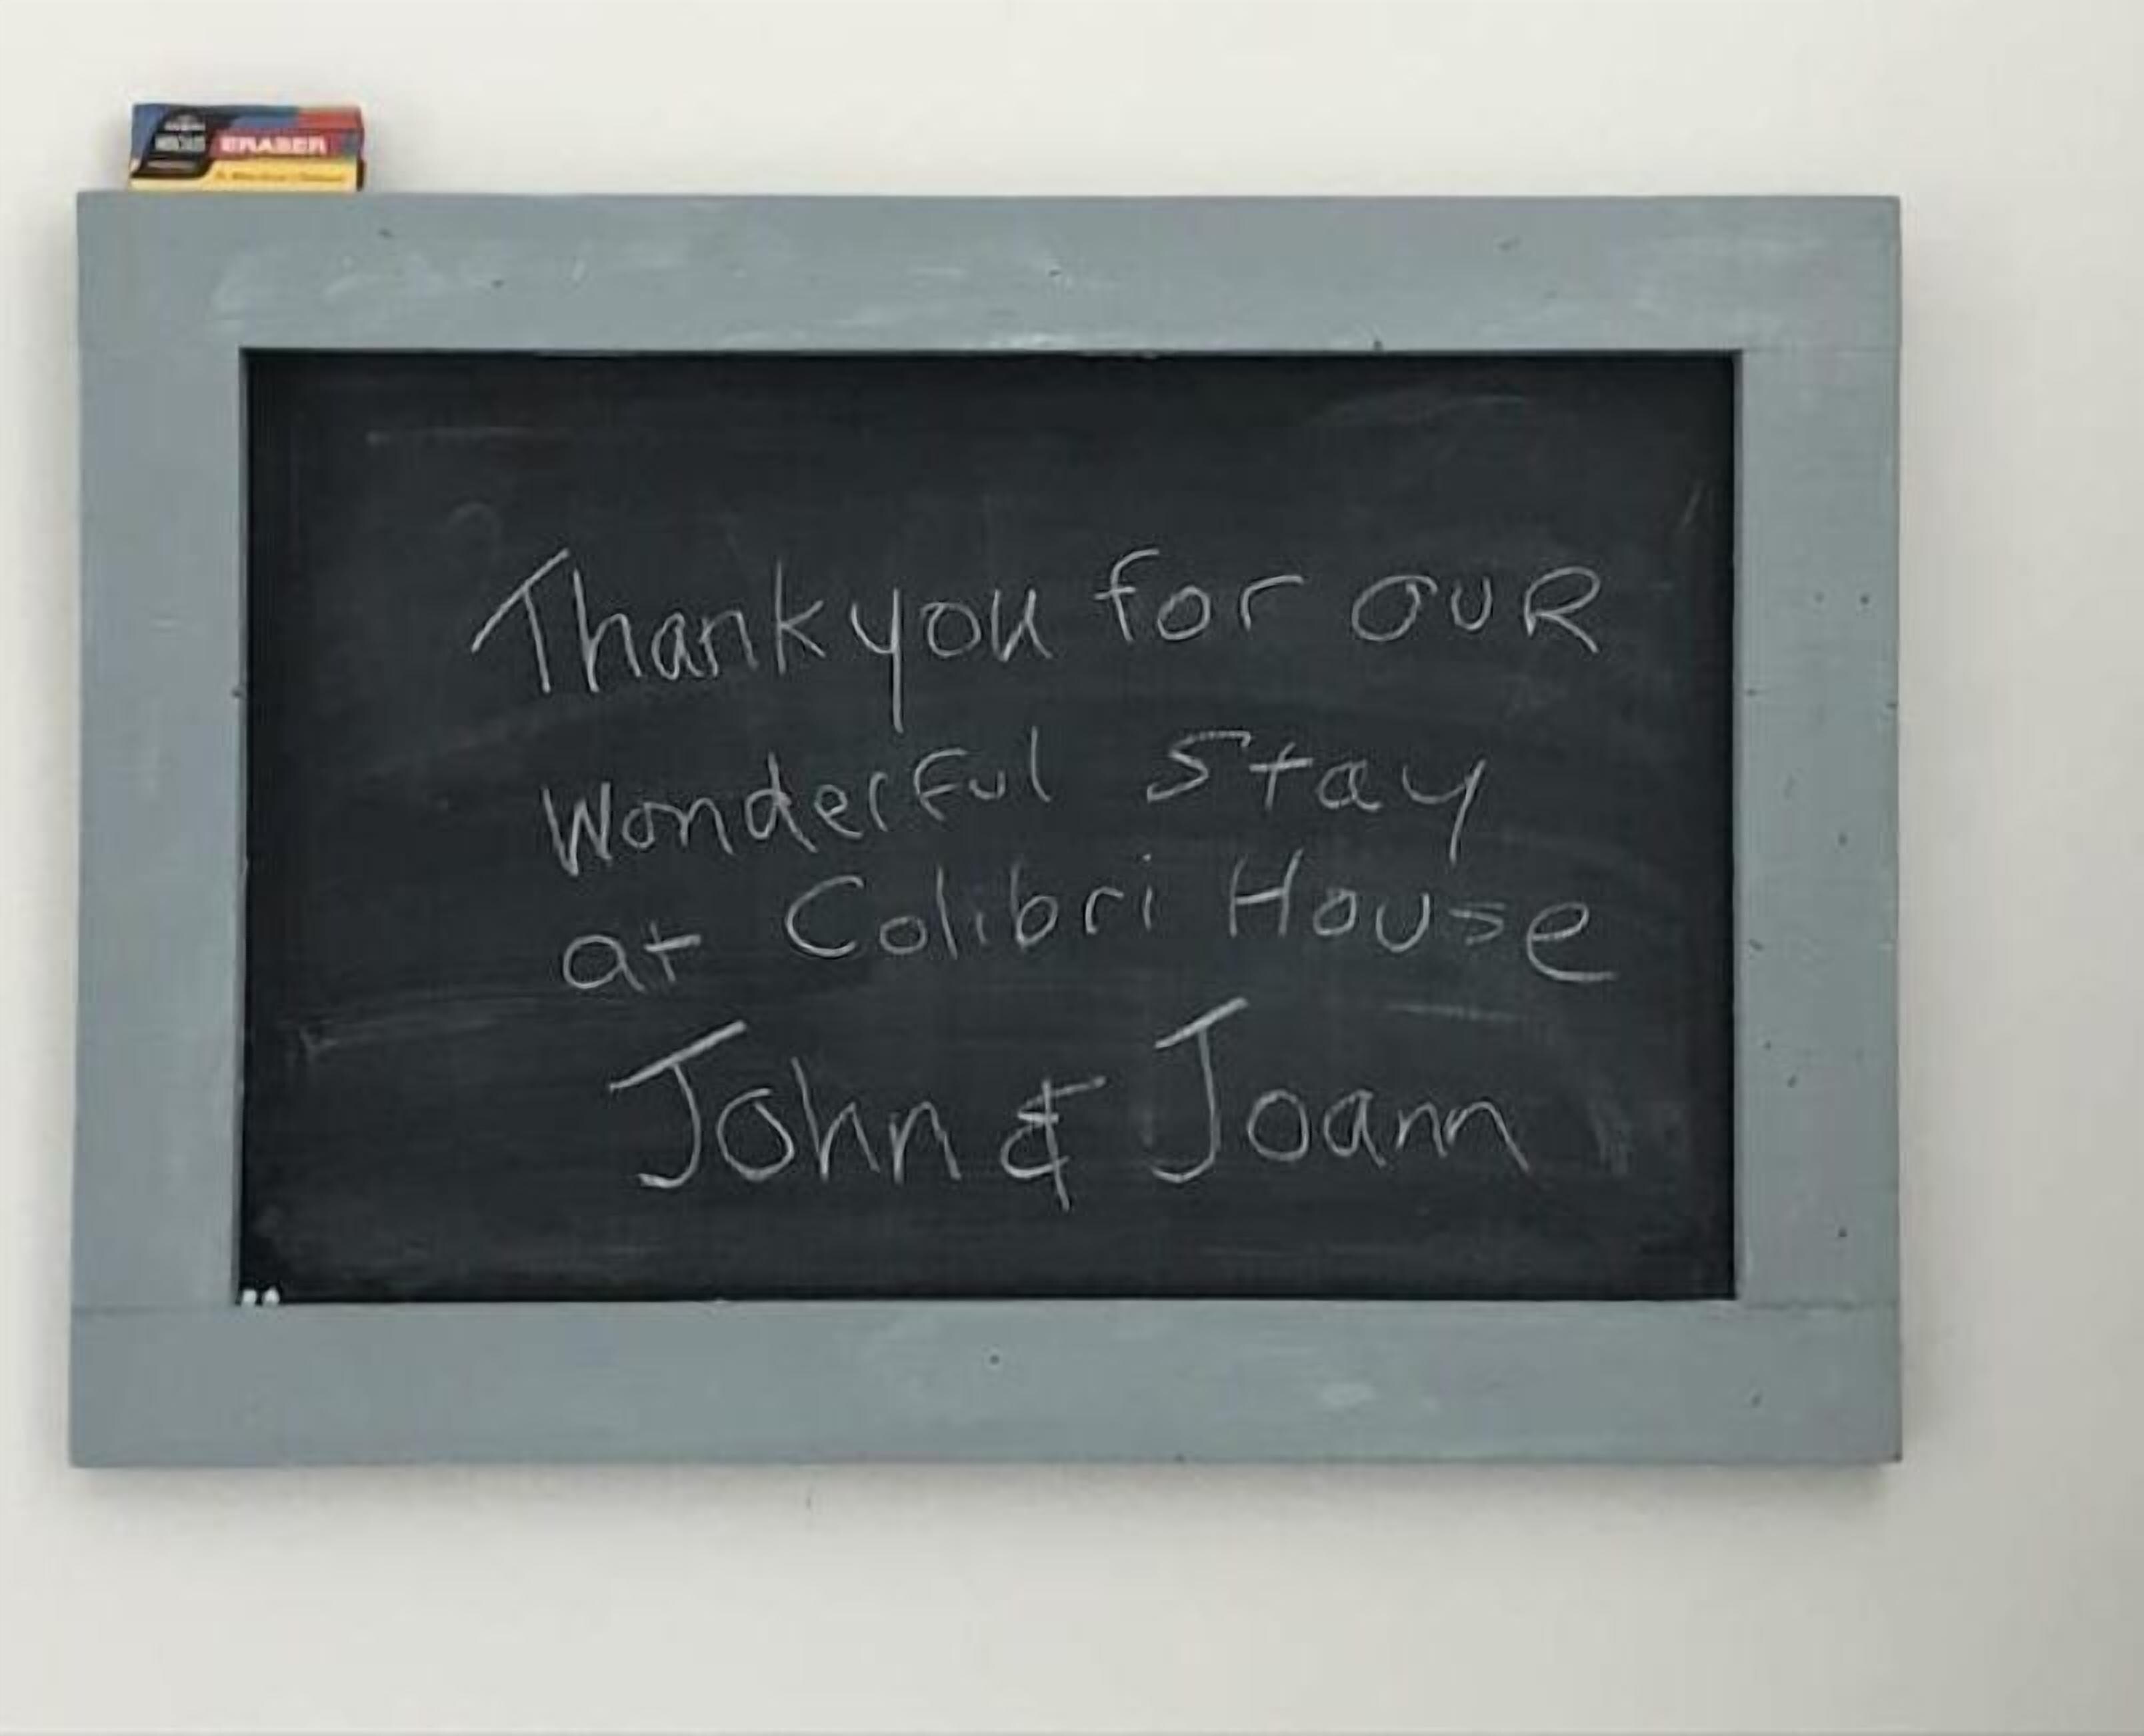 ERASER
Thankyou for OUR
Wonderful Stay
at Colibri House
John & Joann